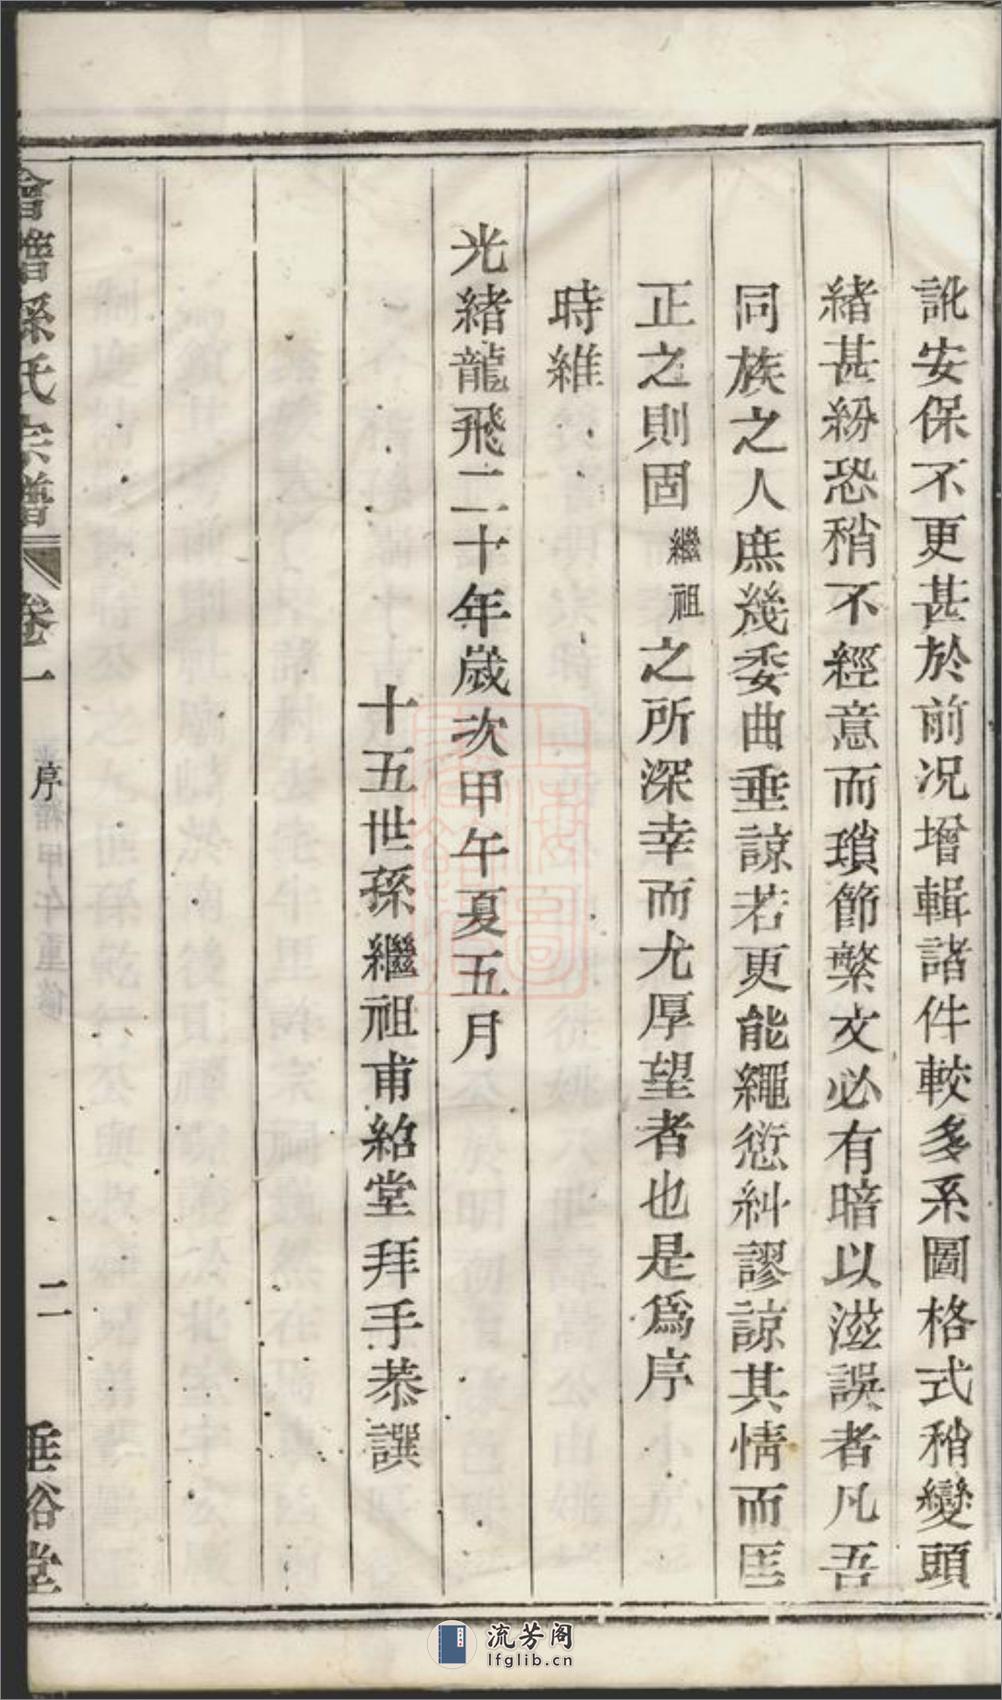 訛安保不更甚於前况增輯諸件較多系圖格式稍變頭
緒甚紛恐稍不經意而瑣節繁文必有暗以滋誤者凡吾
同族之人庶幾委曲垂諒若更能繩愆糾謬諒其情而匡
正之則固繼祖之所深幸而尤厚望者也是爲序
時維
光緒龍飛二十年歲次甲午夏五月
十五世孫繼祖甫紹堂拜手恭譔
會譜孫氏宗譜
卷一
序
二
垂裕堂
流芳阁
lfglib.cn